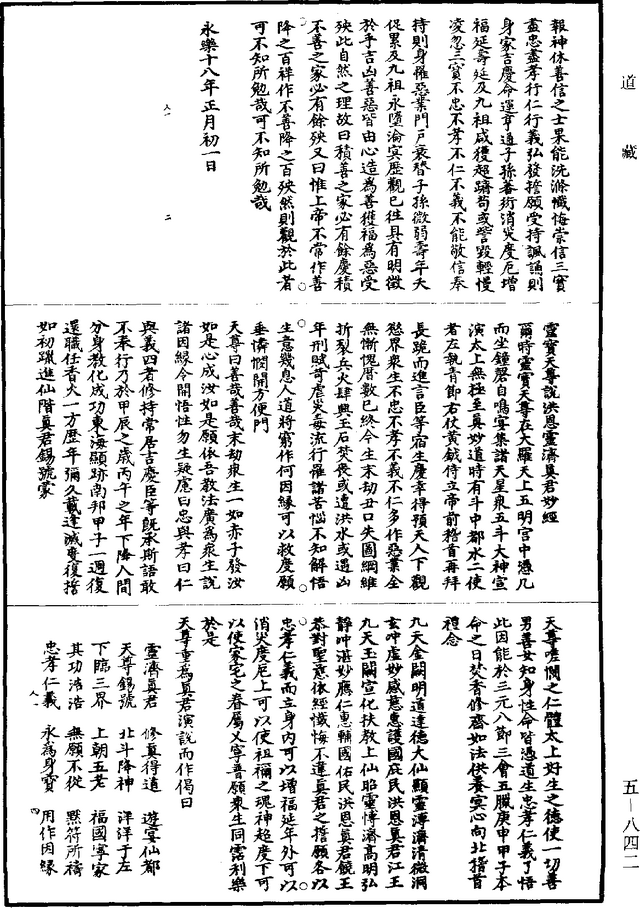 道藏
報神休善信之士果能洗滌懺悔崇信三寶
盡忠盡孝行仁行義弘發誓願受持諷誦則
身家吉慶命運亨通子孫蕃衍消災度厄增
福延壽延及九祖咸獲超躋苟或訾毀輕慢
凌忽三寶不忠不孝不仁不義不能敬信奉
持則身罹惡業門戶衰替子孫微弱壽年夭
促累及九祖永墮淪冥歷觀已往具有明徵
於乎吉凶善惡皆由心造為善獲福為惡受
殃此自然之理故曰積善之家必有餘慶積
不善之家必有餘殃又曰惟上帝不常作善
降之百祥作不善降之百殃然則觀於此者
可不知所勉哉可不知所勉哉
永樂十八年正月初一日
靈寶天尊說洪恩靈濟真君妙經
爾時靈寶天尊在大羅天上五明宮中憑几
而坐鐘磬自鳴宴集諸天星眾五斗大神宣
演太上無極至真妙道時有斗中都水二使
者左執青節右仗黃鉞侍立帝前稽首再拜
長跪而進言臣等宿生慶幸得預天人下觀
愁界衆生不忠不孝不義不仁多作惡業全
無慚愧曆數已終今生末劫丑口失圖綱維
折裂兵火肆興玉石焚喪或遭洪水或遇凶
年刑賦苛虐災毒流行羅諸苦惱不知解悟
生意幾息人道將窮作何因緣可以救度願
垂憐憫開方便門
天尊曰善哉善哉末劫衆生一如赤子發汝
如是心成汝如是願依吾教法廣為衆生說
諸因緣令開悟性勿生疑慮曰忠與孝曰仁
與義四者修持常居吉慶臣等既承斯語敢
不奉行乃於甲辰之歲丙午之年下降人間
分身教化成功東海顯跡南邦甲子一週復
還職任香火一方歷年彌久戴逢減變復誓
如初躐進仙階真君錫號蒙
天尊哩憫之仁體太上好生之德使一切善
男善女知身性命皆憑道生忠孝仁義了悟
此因能於三元八節三會五臘庚申甲子本
命之日焚香修齋如法供養冥心向北稽首
禮念
九天金闕明道達德大仙顯靈溥濟清微洞
玄沖虛妙感慈惠護國庇民洪恩真君江王
九天玉闕宣化扶教上仙昭靈博濟高明弘
靜沖湛妙應仁惠輔國佑民洪恩真君饒王
恭對聖意依經懺悔不違真君之誓願各以
忠孝仁義而立身內可以增福延年外可以
消災度厄上可以使祖禰之魂神超度下可
以使家宅之眷屬乂寧普願衆生同霑利樂
於是
天尊重為真君演說而作偈曰
靈濟真君　修真得道　遊宴仙都
天尊錫號　北斗降神　洋洋于左
下臨三界　上朝五老　福國寧家
其功浩浩　無願不從　默符所禱
忠孝仁義　永為身寶　用作因緣
五—八四二